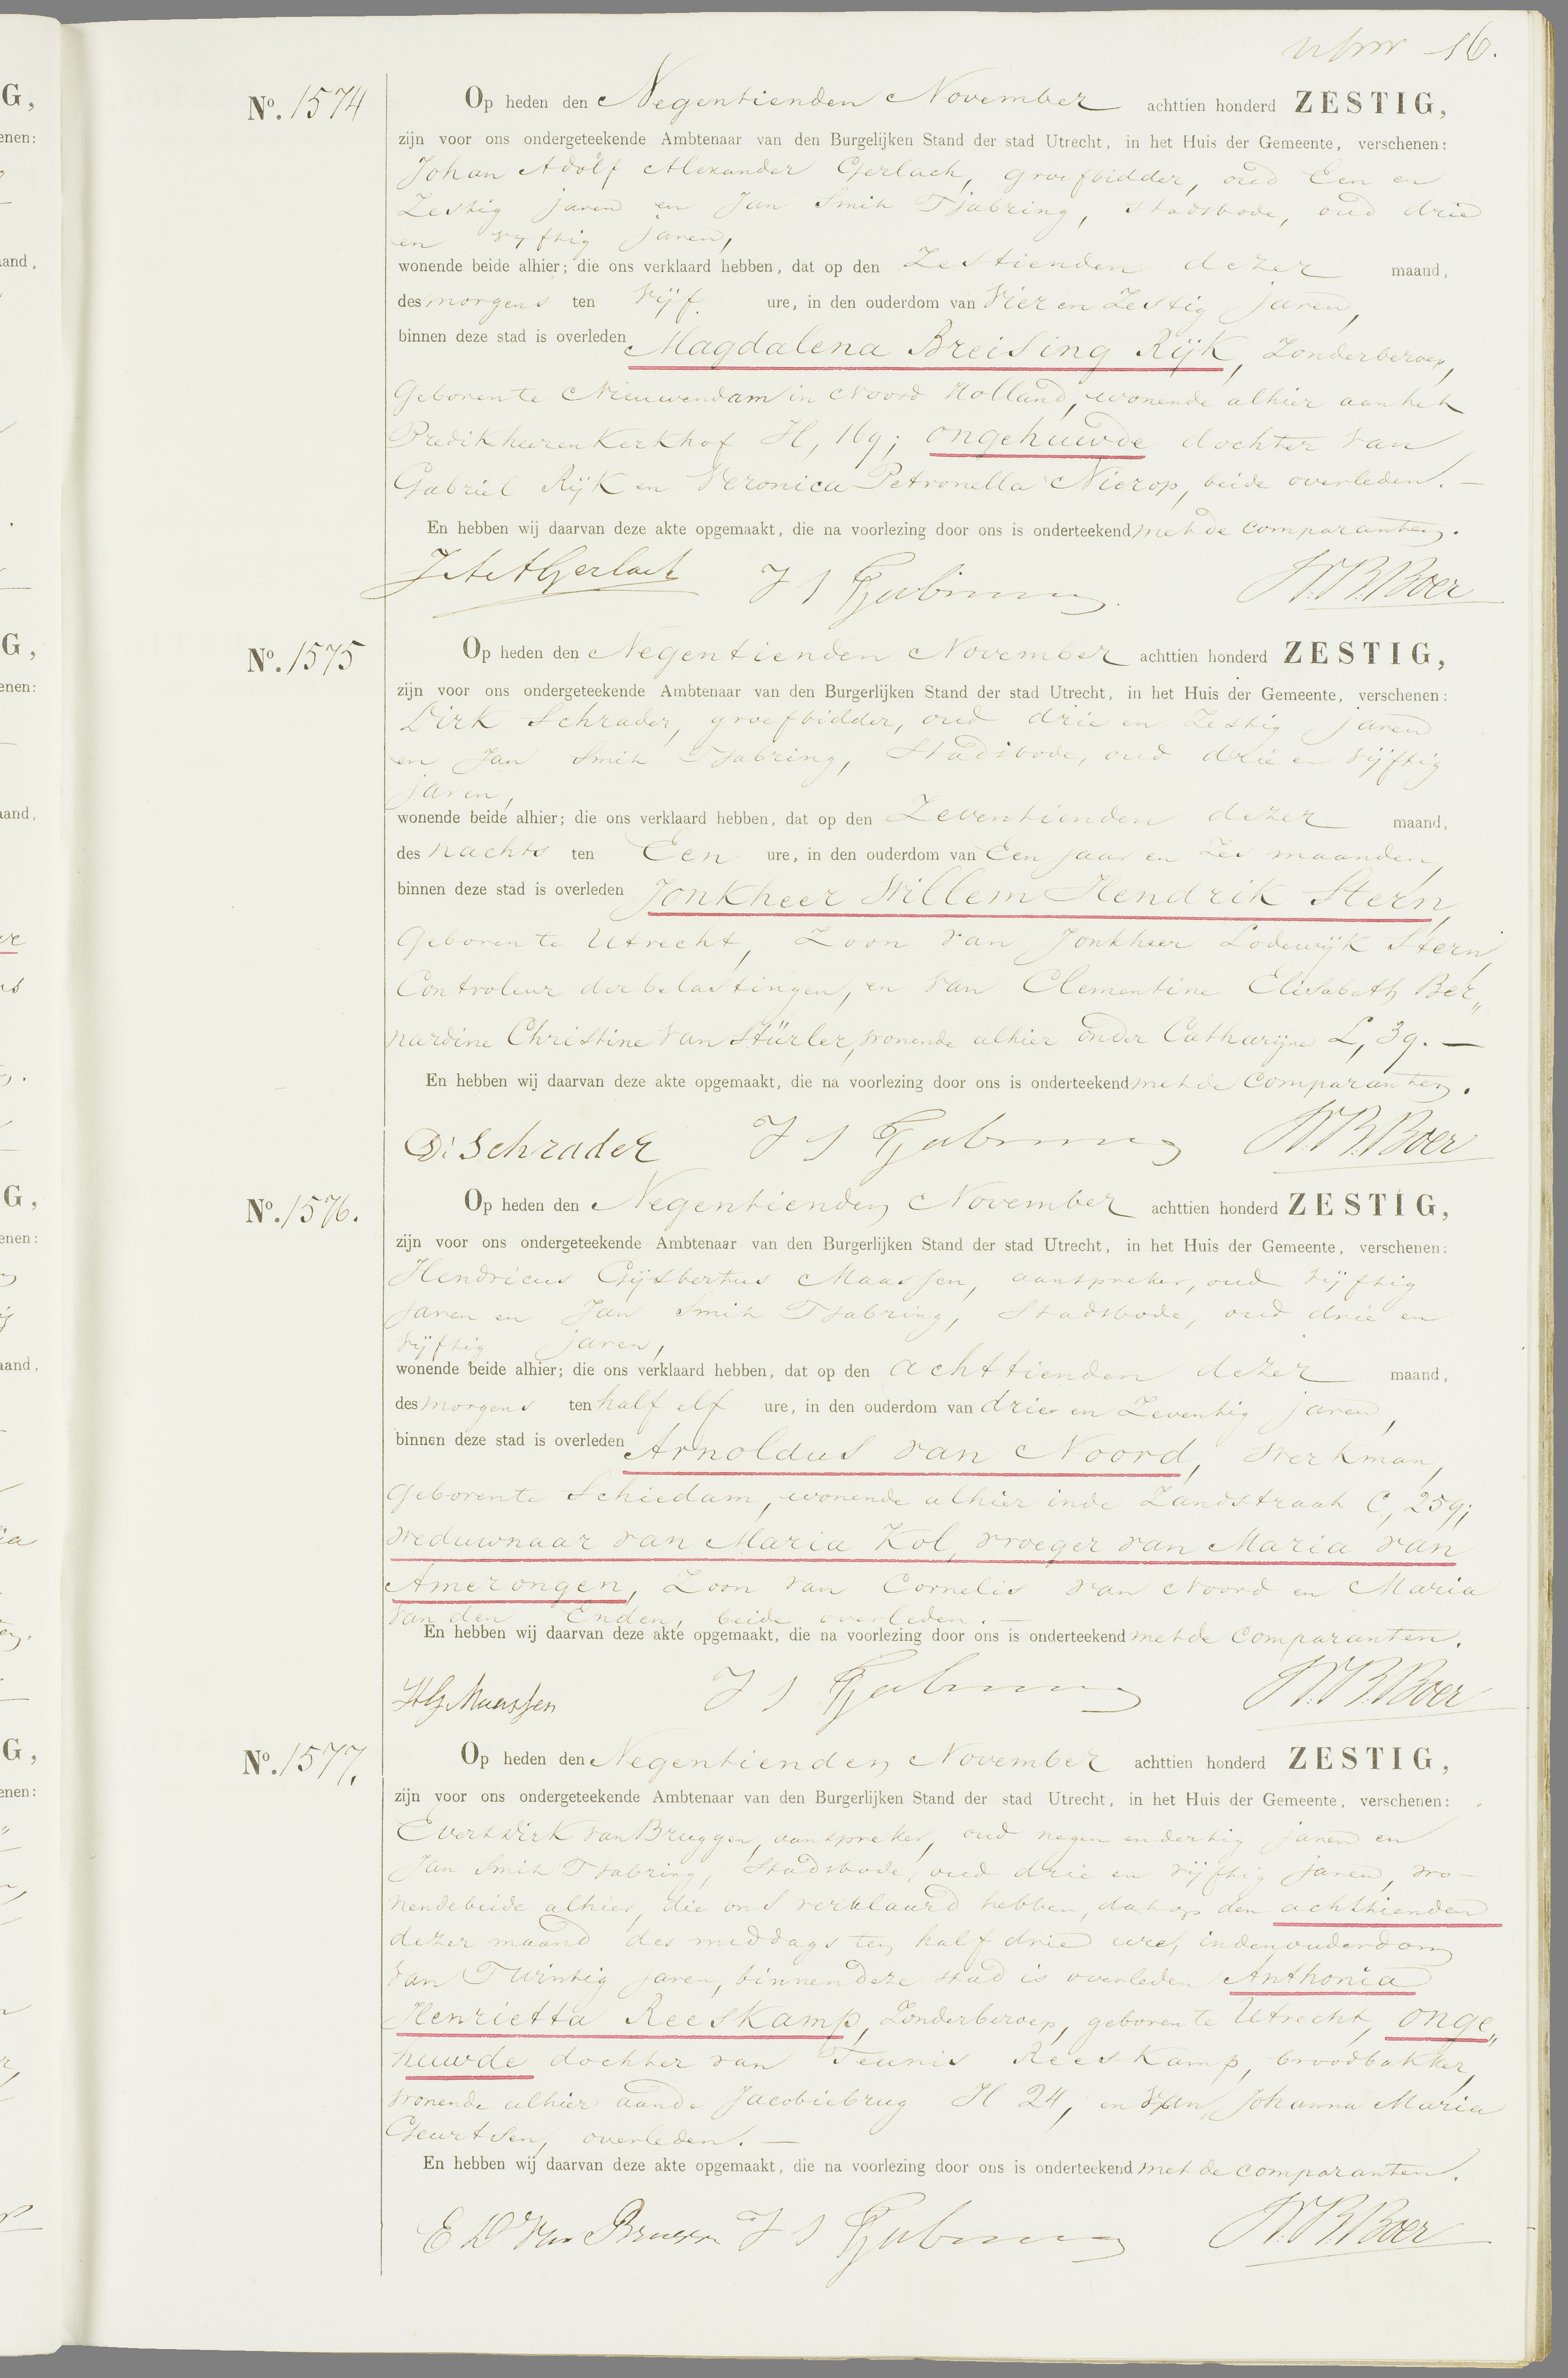 16.
No. 1574
Op heden den Negentienden November achttien honderd ZESTIG,
zijn voor ons ondergeteekende Ambtenaar van den Burgelijken Stand der stad Utrecht, in het Huis der Gemeente, verschenen:
Johan Adolf Alexander Gerlach, groefbidder, oud Een en
Zestig jaren en Jan Smith Tjabring, Stadsbode, oud drie
en vyftig jaren,
wonende beide alhier; die ons verklaard hebben, dat op den Zestienden dezer maand,
des morgens ten Vijf ure, in den ouderdom van Vier en Zestig jaren,
binnen deze stad is overleden Magdalena Breising Rijk, Zonderberoep,
Geboren te Nieuwendam in Noord Holland, wonende alhier aan het
Predikheeren Kerkhof H, 169; ongehuwde dochter van
Gabriel Rijk en Veronica Petronella Nierop, beide overleden. —
En hebben wij daarvan deze akte opgemaakt, die na voorlezing door ons is onderteekend met de comparanten.
J A A Gerlach J S Tjabring W. B. Boer
No. 1575
Op heden den Negentienden November achttien honderd ZESTIG,
zijn voor ons ondergeteekende Ambtenaar van den Burgerlijken Stand der stad Utrecht, in het Huis der Gemeente, verschenen:
Dirk Schrader, groefbidder, oud drie en Zestig jaren
en Jan Smith Tjabring, Stadsbode, oud drie en vijftig
jaren,
wonende beide alhier; die ons verklaard hebben, dat op den Zeventienden dezer maand,
des nachts ten Een ure, in den ouderdom van Een jaar en Zes maanden,
binnen deze stad is overleden Jonkheer Willem Hendrik Stern,
Geboren te Utrecht, Zoon van Jonkheer Lodewijk Stern,
Controleur der belastingen, en van Clementine Elisabeth Ber„
nardine Christine van Stürler, wonende alhier onder Catharijne L, 39. —
En hebben wij daarvan deze akte opgemaakt, die na voorlezing door ons is onderteekend met de comparanten.
D: Schrader J S Tjabring W. B. Boer
No. 1576.
Op heden den Negentienden November achttien honderd ZESTIG,
zijn voor ons ondergeteekende Ambtenaar van den Burgerlijken Stand der stad Utrecht, in het Huis der Gemeente, verschenen:
Hendricus Gijsbertus Maassen, aanspreker, oud vijftig
jaren en Jan Smith Tjabring, Stadsbode, oud drie en
vijftig jaren,
wonende beide alhier; die ons verklaard hebben, dat op den achttienden dezer maand,
des morgens ten half elf ure, in den ouderdom van drie en Zeventig jaren,
binnen deze stad is overleden Arnoldus van Noord, werkman,
Geboren te Schiedam, wonende alhier in de Zandstraat C, 259;
weduwnaar van Maria Kol, vroeger van Maria van
Amerongen, Zoon van Cornelis van Noord en Maria
van den Enden, beide overleden. —
En hebben wij daarvan deze akte opgemaakt, die na voorlezing door ons is onderteekend met de comparanten.
H G Maassen J S Tjabring W. B. Boer
No. 1577.
Op heden den Negentienden November achttien honderd ZESTIG,
zijn voor ons ondergeteekende Ambtenaar van den Burgerlijken Stand der stad Utrecht, in het Huis der Gemeente, verschenen:
Evert Dirk van Bruggen, aanspreker, oud negen en dertig jaren en
Jan Smith Tjabring, Stadsbode, oud drie en vijftig jaren, wo-
nende beide alhier, die ons verklaard hebben, dat op den achttienden
dezer maand des middags ten half drie ure, in den ouderdom
van Twintig jaren, binnen deze stad is overleden Anthonia
Henrietta Reeskamp, Zonderberoep, geboren te Utrecht, onge„
huwde dochter van Teunis Reeskamp, broodbakker,
wonende alhier aan de Jacobiebrug H 24, en van Johanna Maria
Geurtsen, overleden. —
En hebben wij daarvan deze akte opgemaakt, die na voorlezing door ons is onderteekend met de comparanten.
E D Van Bruggen J S Tjabring W. B. Boer